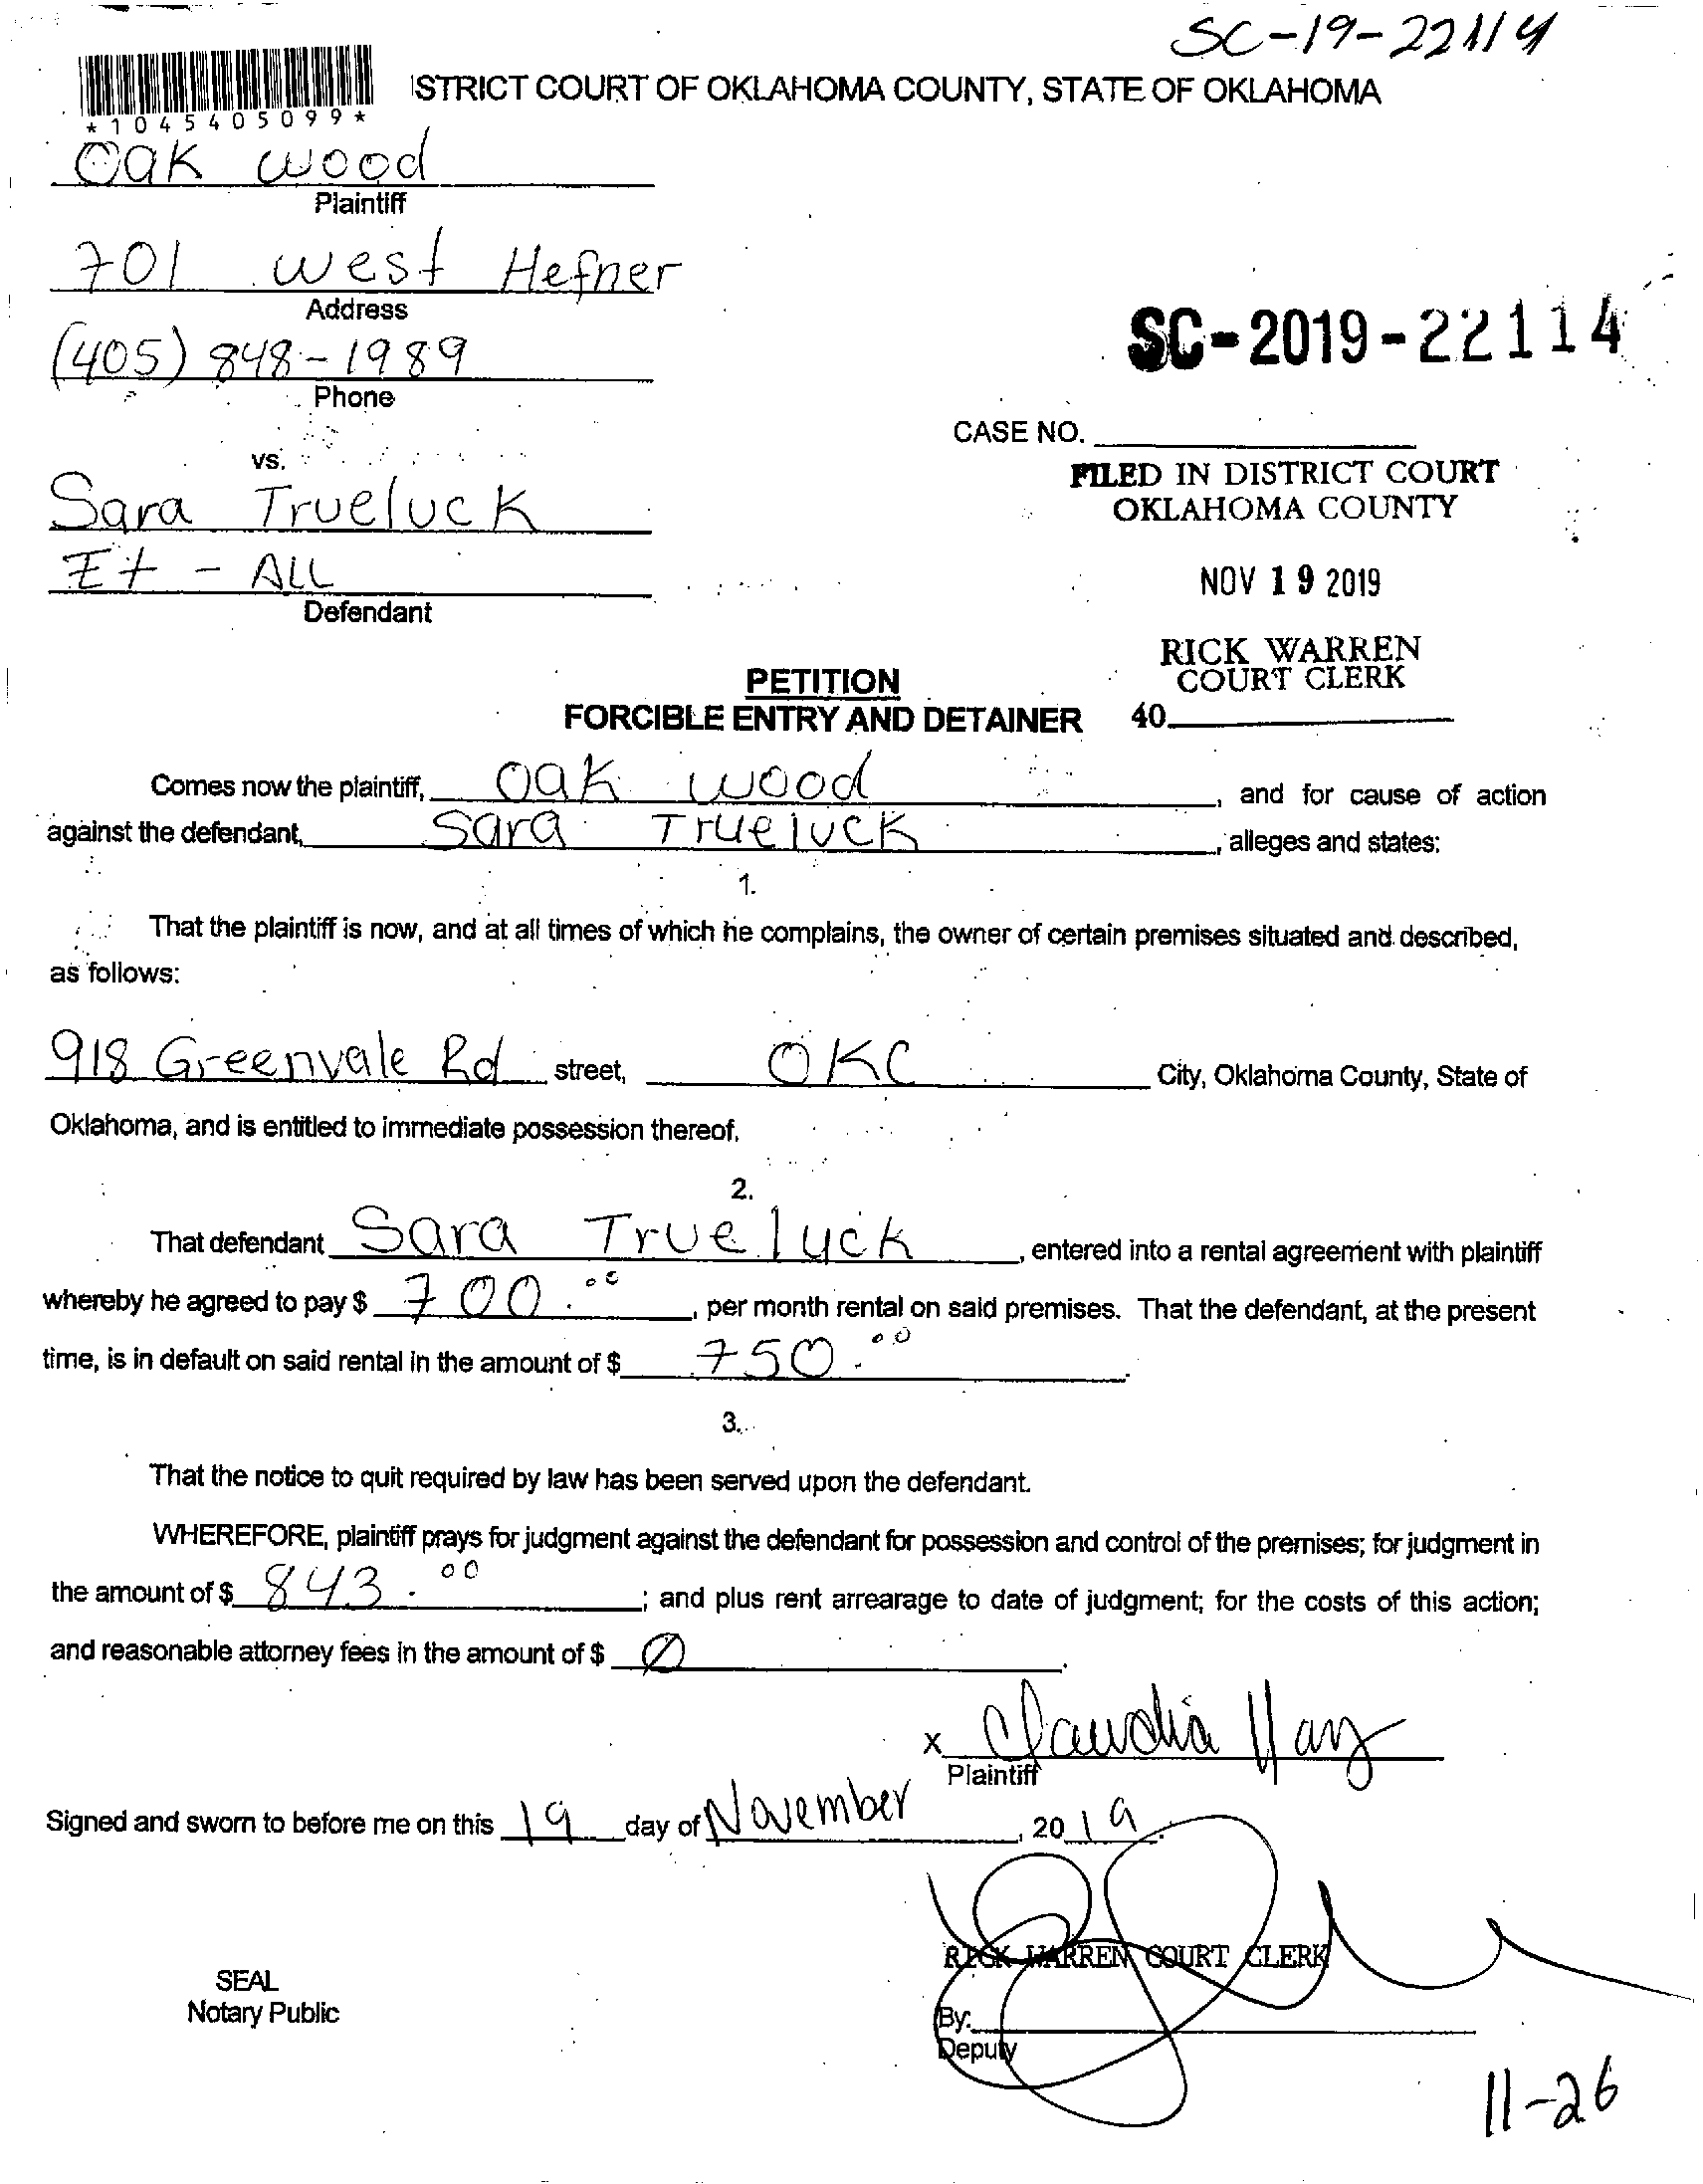 SC-19-22114
ISTRICT COURT OF OKLAHOMA COUNTY, STATE OF OKLAHOMA
*1045405099*
Oak wood
Plaintiff
701 west Hefner
Address
(405) 848-1989
Phone
SC-2019-22114
CASE NO.
vs.
FILED IN DISTRICT COURT
OKLAHOMA COUNTY
Sara Trueluck
Et - ALL
Defendant
NOV 19 2019
RICK WARREN
COURT CLERK
PETITION
FORCIBLE ENTRY AND DETAINER 40
Comes now the plaintiff, Oak wood, and for cause of action
against the defendant, Sara Trueluck, alleges and states:
1.
That the plaintiff is now, and at all times of which he complains, the owner of certain premises situated and described,
as follows:
918 Greenvale Rd street, OKC City, Oklahoma County, State of
Oklahoma, and is entitled to immediate possession thereof.
2.
That defendant Sara Trueluck, entered into a rental agreement with plaintiff
whereby he agreed to pay $ 700.00, per month rental on said premises. That the defendant, at the present
time, is in default on said rental in the amount of $ 750.00.
3.
That the notice to quit required by law has been served upon the defendant.
WHEREFORE, plaintiff prays for judgment against the defendant for possession and control of the premises; for judgment in
the amount of $ 843.00; and plus rent arrearage to date of judgment; for the costs of this action;
and reasonable attorney fees in the amount of $ 0.
x Claudia
Plaintiff
Signed and sworn to before me on this 19 day of November, 2019.
RICK WARREN COURT CLERK
SEAL
Notary Public
By:
Deputy
11-26